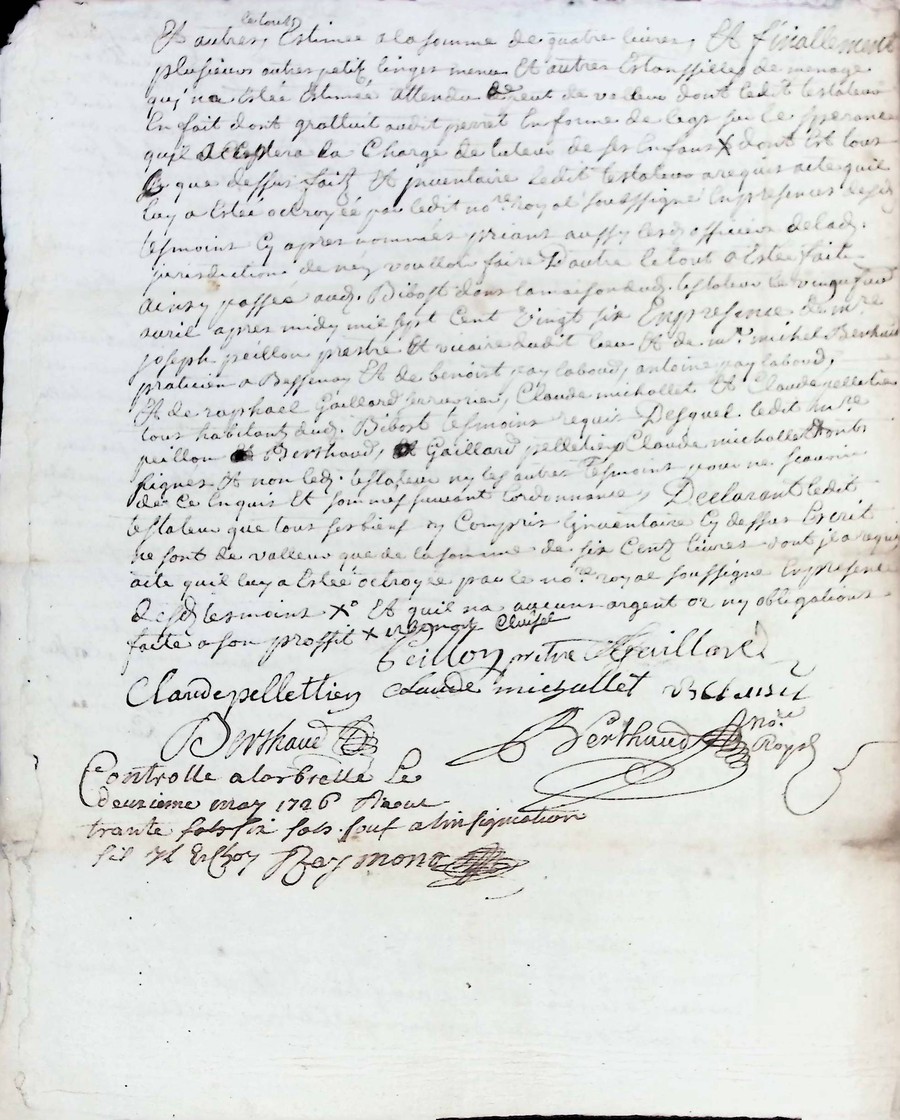 le tout
Et autres, Estimée a la somme de quatre livres, Et finallement
plusieurs autres petitz linges menu Et autres Estansilles de menage
quj na Estée Estimée attendu peut de valleur dont ledit testateur
En fait dont grattuit audit perret En forme de legs sur Lesperance
quil acceptera la Charge de tuteur de ses Enfans X dont Et tout
ce que dessus faitz Et jnventaire ledit testateur a requis acte quil
luy a Estée octroyée par ledit nore. royal soussigné En presences desd.
tesmoint Cy apres nommés priant aussy lesd officiers de lad.
jurisdiction de ney voulloir faire Dautre le tout a Estée fait
ainsy passée aud. Bibost dans la maison dud. testateur le vingt
avril apres midy mil sept Cent vingt six En presence de mre
joseph peillon prestre Et vicaire dudit lieu Et de mre. michel Berthaud
praticien a Bessenay Et de benoist pay laboud, antoine pay laboud,
Et de raphael Gaillard , Claude michallet Et Claude pelletier
tous habitantz dud. Bibost tesmoins requis Desquel. ledit mre
peillon Berthaud, Gaillard pelletier Claude michallet ont
signés Et non led. testateur ny les autres tesmoint pour ne scavoir
de ce Enquis Et sommes suivant Lordonnance, Declarant ledit
testateur que tous ses bien y Compris Linventaire Cy dessus Escrit
ne sont de valleur que de la somme de six Centz livres dont jl a requis
acte quil luy a Estée octroyée par le nore. royal soussigné En presence
desd tesmoint X Et quil na aucuns argent or ny obligations
faite a son proffit X
Peillon prêtre Gaillard
Claude pellettier Claude michallet
Berthaud Berthaud nore. Royal
Controlle a larbrelle Le
deuxieme may 1726 Recut
trante six sols sauf a linsignuation
Reymond